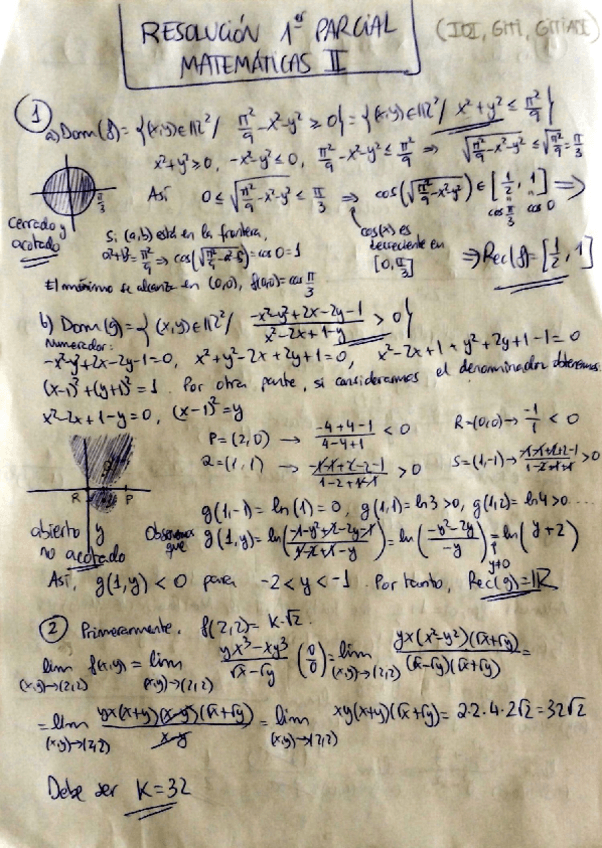 RESOLUCIÓN 1er PARCIAL
MATEMÁTICAS II
(IOI, GITI, GITIADE)
① a) Dom(f) = {(x,y)∈ℝ² / π²/9 - x² - y² ≥ 0} = {(x,y)∈ℝ² / x² + y² ≤ π²/9}
x²+y² ≥ 0, -x²-y² ≤ 0, π²/9 - x² - y² ≤ π²/9 ⇒ √(π²/9 - x² - y²) ≤ √(π²/9) = π/3
π/3
Así 0 ≤ √(π²/9 - x² - y²) ≤ π/3 ⇒ cos(√(π²/9 - x² - y²)) ∈ [1/2, 1] ⇒
cos π/3 cos 0
cerrado y
acotado
cos(x) es
decreciente en
[0, π/3]
Si (a,b) está en la frontera,
a²+b² = π²/9 ⇒ cos(√(π²/9 - a² - b²)) = cos 0 = 1
⇒ Rec(f) = [1/2, 1]
El mínimo se alcanza en (0,0), f(0,0) = cos π/3
b) Dom(g) = {(x,y)∈ℝ² / (-x²-y²+2x-2y-1)/(x²-2x+1-y) > 0}
Numerador:
-x²-y²+2x-2y-1=0, x²+y²-2x+2y+1=0, x²-2x+1+y²+2y+1-1=0
(x-1)²+(y+1)²=1. Por otra parte, si consideramos el denominador obtenemos
x²-2x+1-y=0, (x-1)²=y
P=(2,0) → (-4+4-1)/(4-4+1) < 0 R=(0,0) → -1/1 < 0
Q=(1,1) → (-1-1+2-2-1)/(1-2+1-1) > 0 S=(1,-1) → > 0
R P
g(1,-1) = ln(1) = 0, g(1,1) = ln 3 > 0, g(1,2) = ln 4 > 0 ...
abierto y
no acotado
Observemos que g(1,y) = ln((-1-y²+2-2y-1)/(1-2+1-y)) = ln((-y²-2y)/(-y)) = ln(y+2)
y≠0
Así, g(1,y) < 0 para -2 < y < -1. Por tanto, Rec(g) = ℝ
② Primeramente, f(2,2) = k·√2.
lim (x,y)→(2,2) f(x,y) = lim (x,y)→(2,2) (yx³-xy³)/(√x-√y) (0/0) = lim (x,y)→(2,2) (yx(x²-y²)(√x+√y))/((√x-√y)(√x+√y)) =
= lim (x,y)→(2,2) (yx(x+y)(x-y)(√x+√y))/(x-y) = lim (x,y)→(2,2) xy(x+y)(√x+√y) = 2·2·4·2√2 = 32√2
Debe ser k=32